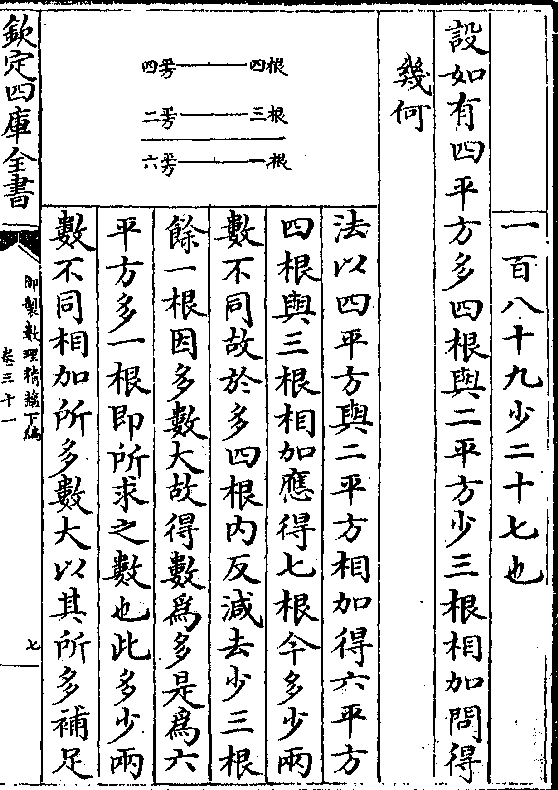 一百八十九少二十七也
設如有四平方多四根與二平方少三根相加問得
幾何
四平方 四根
二平方 三根
六平方 一根
法以四平方與二平方相加得六平方
四根與三根相加應得七根今多少兩
數不同故於多四根內反減去少三根
餘一根因多數大故得數為多是為六
平方多一根即所求之數也此多少兩
數不同相加所多數大以其所多補足
欽定四庫全書
御製數理精蘊下編
卷三十一
七